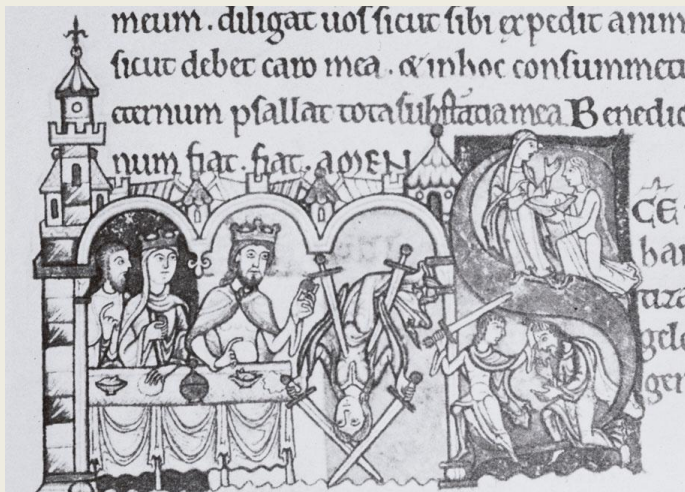 meum . diligat uos sicut sibi expedit anim
sicut debet caro mea . & in hoc consummetu
eternum psallat tota substātia mea Benedic
num fiat . fiat . AMEN
CE
ban
tiza
gele
gen